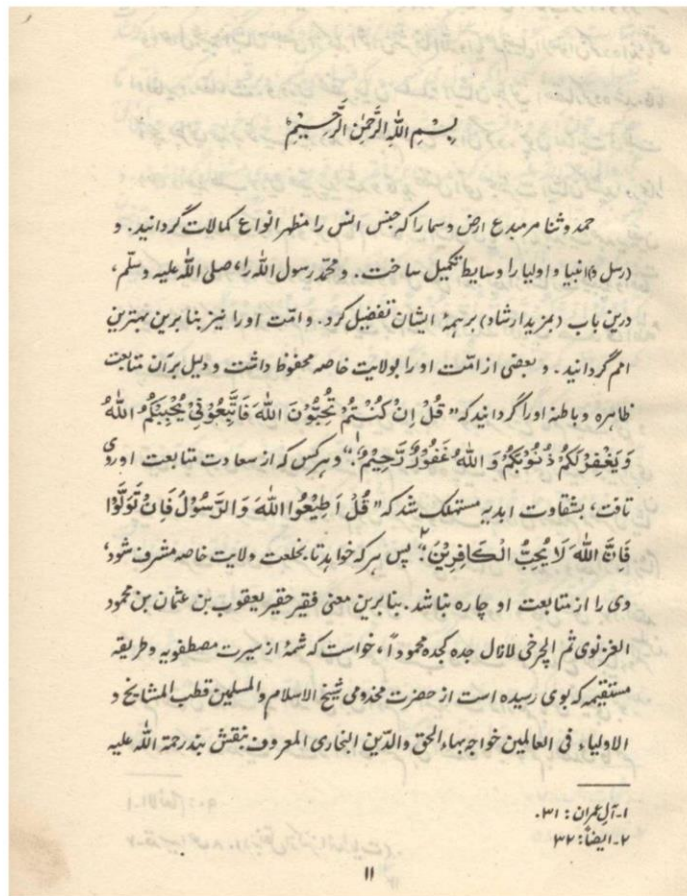 بِسْمِ اللّٰهِ الرَّحْمٰنِ الرَّحِیْمِ
حمد و ثنا مر مبدع ارض و سما را که جنس انس را مظهر انواع کمالات گردانید. و
(رسل و) انبیا و اولیا را وسایط تکمیل ساخت. و محمّد رسول اللّٰه را، صلی اللّٰه علیه وسلّم،
درین باب (بمزید ارشاد) بر همهٔ ایشان تفضیل کرد. و امّت او را نیز بنا برین بهترین
امم گردانید. و بعضی از امّت او را بولایت خاصه محفوظ داشت و دلیل بر آن متابعت
ظاهره و باطنه او را گردانید که "قُلْ اِنْ کُنْتُمْ تُحِبُّوْنَ اللّٰهَ فَاتَّبِعُوْنِیْ یُحْبِبْکُمُ اللّٰهُ
وَیَغْفِرْلَکُمْ ذُنُوْبَکُمْ وَاللّٰهُ غَفُوْرٌ رَّحِیْمٌ۱." و هر کس که از سعادت متابعت او روی
تافت، بشقاوت ابدیه مستهلک شد که "قُلْ اَطِیْعُوا اللّٰهَ وَالرَّسُوْلُ فَاِنْ تَوَلَّوْا
فَاِنَّ اللّٰهَ لَا یُحِبُّ الْکَافِرِیْنَ۲." پس هر که خواهد تا بخلعت ولایت خاصه مشرف شود،
وی را از متابعت او چاره نباشد. بنا برین معنی فقیر حقیر یعقوب بن عثمان بن محمود
الغزنوی ثم الچرخی لازال جده کجده محموداً، خواست که شمهٔ از سیرت مصطفویه و طریقه
مستقیمه که بوی رسیده است از حضرت مخدومی شیخ الاسلام والمسلمین قطب المشایخ و
الاولیاء فی العالمین خواجه بهاء الحق والدّین البخاری المعروف بنقش بند رحمة اللّٰه علیه
۱-آلِ عمران: ۳۱.
۲-ایضاً: ۳۲
۱۱